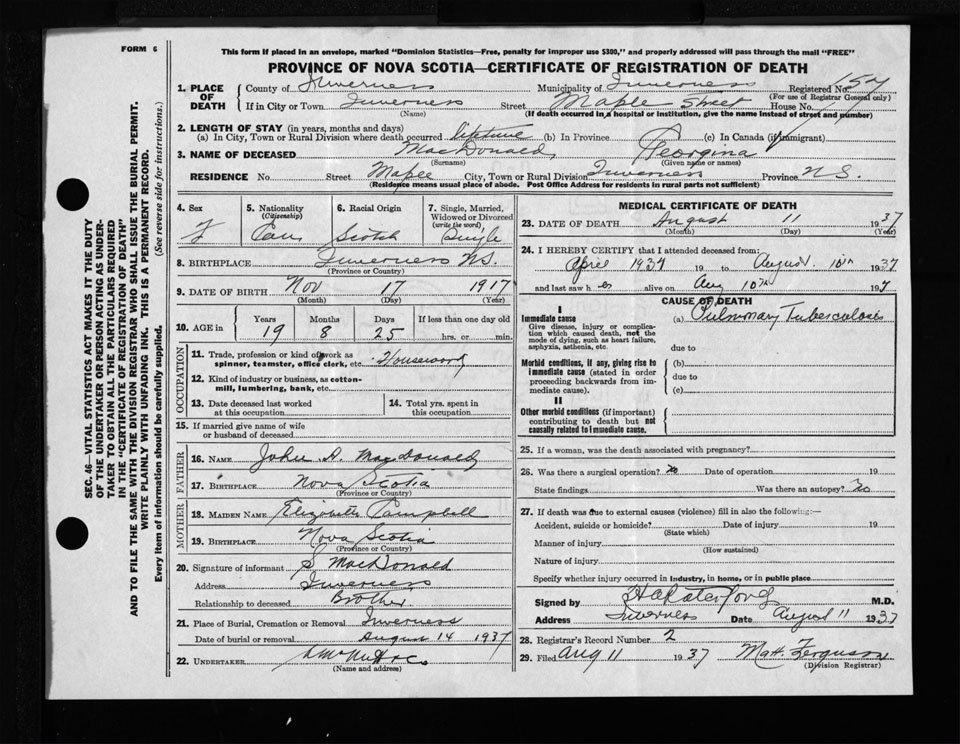 FORM 6
This form if placed in an envelope, marked "Dominion Statistics—Free, penalty for improper use $300," and properly addressed will pass through the mail "FREE"
PROVINCE OF NOVA SCOTIA—CERTIFICATE OF REGISTRATION OF DEATH
1. PLACE OF DEATH County of Inverness Municipality of Inverness Registered No. 157
(For use of Registrar General only)
If in City or Town Inverness Street Maple Street House No.
(Name) (If death occurred in a hospital or institution, give the name instead of street and number)
2. LENGTH OF STAY (in years, months and days)
(a) In City, Town or Rural Division where death occurred lifetime (b) In Province (c) In Canada (if immigrant)
3. NAME OF DECEASED MacDonald, Georgina
(Surname) (Given name or names)
RESIDENCE No. Street Maple City, Town or Rural Division Inverness Province N S.
(Residence means usual place of abode. Post Office Address for residents in rural parts not sufficient)
4. Sex F
5. Nationality (Citizenship) Can
6. Racial Origin Scotch
7. Single, Married, Widowed or Divorced (write the word) Single
8. BIRTHPLACE Inverness N.S.
(Province or Country)
9. DATE OF BIRTH Nov 17 1917
(Month) (Day) (Year)
10. AGE in Years 19 Months 8 Days 25 If less than one day old hrs. or min.
OCCUPATION
11. Trade, profession or kind of work as spinner, teamster, office clerk, etc. Housework
12. Kind of industry or business, as cotton-mill, lumbering, bank, etc.
13. Date deceased last worked at this occupation
14. Total yrs. spent in this occupation
15. If married give name of wife or husband of deceased
FATHER
16. NAME John A. MacDonald
17. BIRTHPLACE Nova Scotia
(Province or Country)
MOTHER
18. MAIDEN NAME Elizabeth Campbell
19. BIRTHPLACE Nova Scotia
(Province or Country)
20. Signature of informant S MacDonald
Address Inverness
Relationship to deceased Brother
21. Place of Burial, Cremation or Removal Inverness
Date of burial or removal August 14 1937
22. UNDERTAKER
(Name and address)
MEDICAL CERTIFICATE OF DEATH
23. DATE OF DEATH August 11 1937
(Month) (Day) (Year)
24. I HEREBY CERTIFY that I attended deceased from:
April 1937 19 to August 10th 1937
and last saw her alive on Aug 10th 1937
CAUSE OF DEATH
Immediate cause
Give disease, injury or complication which caused death, not the mode of dying, such as heart failure, asphyxia, asthenia, etc.
(a) Pulmonary Tuberculosis
due to
Morbid conditions, if any, giving rise to immediate cause (stated in order proceeding backwards from immediate cause).
(b)
due to
(c)
II
Other morbid conditions (if important) contributing to death but not causally related to immediate cause.
25. If a woman, was the death associated with pregnancy?
26. Was there a surgical operation? No Date of operation 19
State findings Was there an autopsy? No
27. If death was due to external causes (violence) fill in also the following:—
Accident, suicide or homicide? Date of injury 19
(State which)
Manner of injury
(How sustained)
Nature of injury
Specify whether injury occurred in industry, in home, or in public place
Signed by M.D.
Address Inverness Date August 11 1937
28. Registrar's Record Number 2
29. Filed Aug 11 1937 Matt. Ferguson
(Division Registrar)
SEC. 46—VITAL STATISTICS ACT MAKES IT THE DUTY
OF THE UNDERTAKER OR PERSON ACTING AS UNDERTAKER TO OBTAIN ALL THE PARTICULARS REQUIRED
IN THE "CERTIFICATE OF REGISTRATION OF DEATH"
AND TO FILE THE SAME WITH THE DIVISION REGISTRAR WHO SHALL ISSUE THE BURIAL PERMIT.
WRITE PLAINLY WITH UNFADING INK. THIS IS A PERMANENT RECORD.
Every item of information should be carefully supplied. (See reverse side for instructions.)